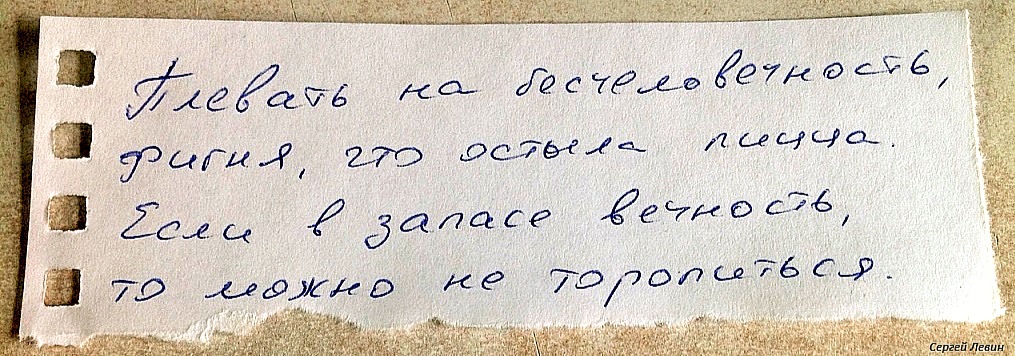 Плевать на бесчеловечность,
фигня, что остыла пицца.
Если в запасе вечность,
то можно не торопиться.
Сергей Левин